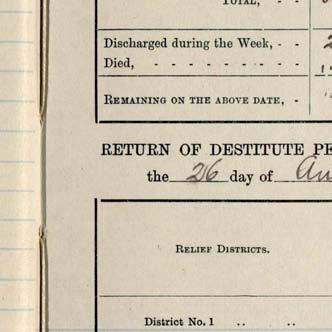 TOTAL,
Discharged during the Week, - -
Died, - - - - - - - -
REMAINING ON THE ABOVE DATE, -
RETURN OF DESTITUTE
the 26 day of
RELIEF DISTRICTS.
District No. 1 .. ..